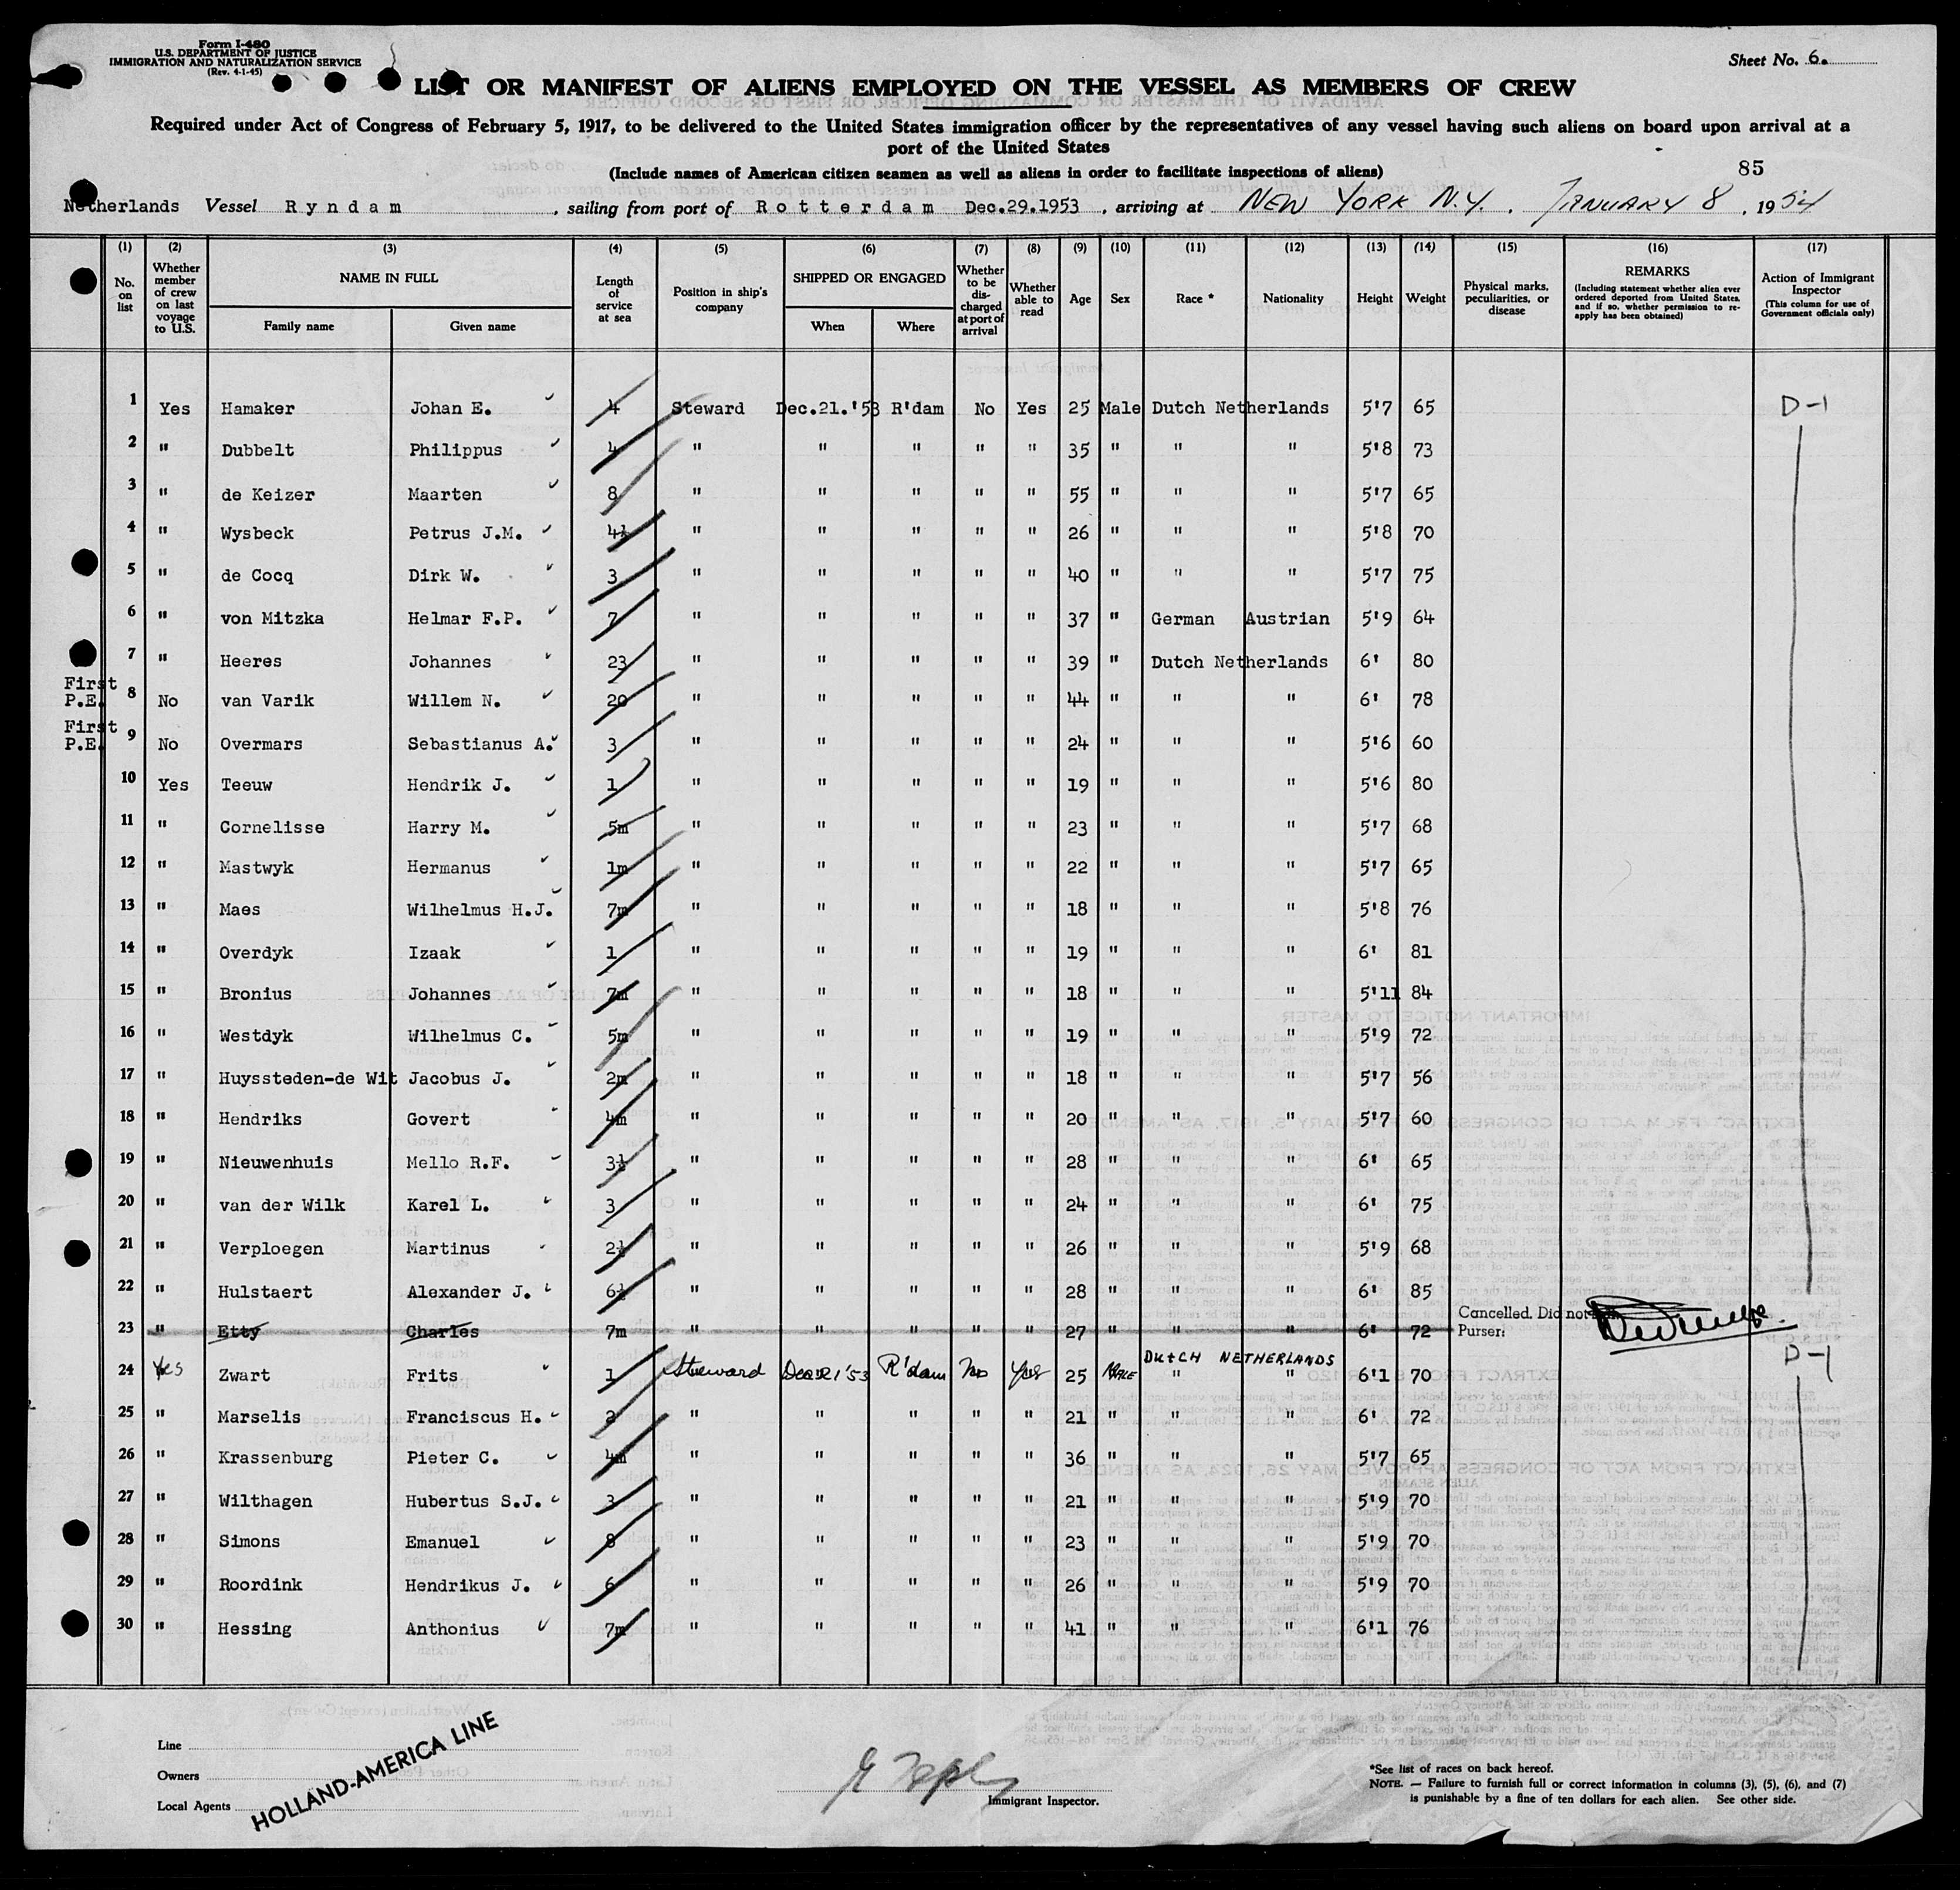 Form I-480
U.S. DEPARTMENT OF JUSTICE
IMMIGRATION AND NATURALIZATION SERVICE
(Rev. 4-1-45)
Sheet No. 6.
LIST OR MANIFEST OF ALIENS EMPLOYED ON THE VESSEL AS MEMBERS OF CREW
Required under Act of Congress of February 5, 1917, to be delivered to the United States immigration officer by the representatives of any vessel having such aliens on board upon arrival at a
port of the United States
(Include names of American citizen seamen as well as aliens in order to facilitate inspections of aliens)
85
Netherlands Vessel Ryndam, sailing from port of Rotterdam Dec.29.1953, arriving at NEW YORK N.Y., JANUARY 8, 1954
(1) (2) (3) (4) (5) (6) (7) (8) (9) (10) (11) (12) (13) (14) (15) (16) (17)
No. on list
Whether member of crew on last voyage to U.S.
NAME IN FULL
Family name
Given name
Length of service at sea
Position in ship's company
SHIPPED OR ENGAGED
When
Where
Whether to be discharged at port of arrival
Whether able to read
Age
Sex
Race *
Nationality
Height
Weight
Physical marks, peculiarities, or disease
REMARKS
(Including statement whether alien ever ordered deported from United States, and if so, whether permission to reapply has been obtained)
Action of Immigrant Inspector
(This column for use of Government officials only)
1 Yes Hamaker Johan E. 4 Steward Dec.21.'53 R'dam No Yes 25 Male Dutch Netherlands 5'7 65 D-1
2 " Dubbelt Philippus 4 " " " " " 35 " " " 5'8 73
3 " de Keizer Maarten 8 " " " " " 55 " " " 5'7 65
4 " Wysbeck Petrus J.M. 4½ " " " " " 26 " " " 5'8 70
5 " de Cocq Dirk W. 3 " " " " " 40 " " " 5'7 75
6 " von Mitzka Helmar F.P. 7 " " " " " 37 " German Austrian 5'9 64
7 " Heeres Johannes 23 " " " " " 39 " Dutch Netherlands 6' 80
First P.E. 8 No van Varik Willem N. 20 " " " " " 44 " " " 6' 78
First P.E. 9 No Overmars Sebastianus A. 3 " " " " " 24 " " " 5'6 60
10 Yes Teeuw Hendrik J. 1 " " " " " 19 " " " 5'6 80
11 " Cornelisse Harry M. 5m " " " " " 23 " " " 5'7 68
12 " Mastwyk Hermanus 1m " " " " " 22 " " " 5'7 65
13 " Maes Wilhelmus H.J. 7m " " " " " 18 " " " 5'8 76
14 " Overdyk Izaak 1 " " " " " 19 " " " 6' 81
15 " Bronius Johannes 7m " " " " " 18 " " " 5'11 84
16 " Westdyk Wilhelmus C. 5m " " " " " 19 " " " 5'9 72
17 " Huyssteden-de Wit Jacobus J. 2m " " " " " 18 " " " 5'7 56
18 " Hendriks Govert 4m " " " " " 20 " " " 5'7 60
19 " Nieuwenhuis Mello R.F. 3½ " " " " " 28 " " " 6' 65
20 " van der Wilk Karel L. 3 " " " " " 24 " " " 6' 75
21 " Verploegen Martinus 2½ " " " " " 26 " " " 5'9 68
22 " Hulstaert Alexander J. 6½ " " " " " 28 " " " 6' 85
23 " Etty Charles 7m " " " " " 27 " " " 6' 72 Cancelled. Did not
Purser:
24 Yes Zwart Frits 1 Steward Dec 21 '53 R'dam No Yes 25 MALE DUTCH NETHERLANDS " " 6'1 70 D-1
25 " Marselis Franciscus H. 2 " " " " " 21 " " " 6' 72
26 " Krassenburg Pieter C. 4m " " " " " 36 " " " 5'7 65
27 " Wilthagen Hubertus S.J. 3 " " " " " 21 " " " 5'9 70
28 " Simons Emanuel 8 " " " " " 23 " " " 5'9 70
29 " Roordink Hendrikus J. 6 " " " " " 26 " " " 5'9 70
30 " Hessing Anthonius 7m " " " " " 41 " " " 6'1 76
Line
Owners
Local Agents
HOLLAND-AMERICA LINE
Immigrant Inspector.
*See list of races on back hereof.
NOTE. — Failure to furnish full or correct information in columns (3), (5), (6), and (7)
is punishable by a fine of ten dollars for each alien. See other side.